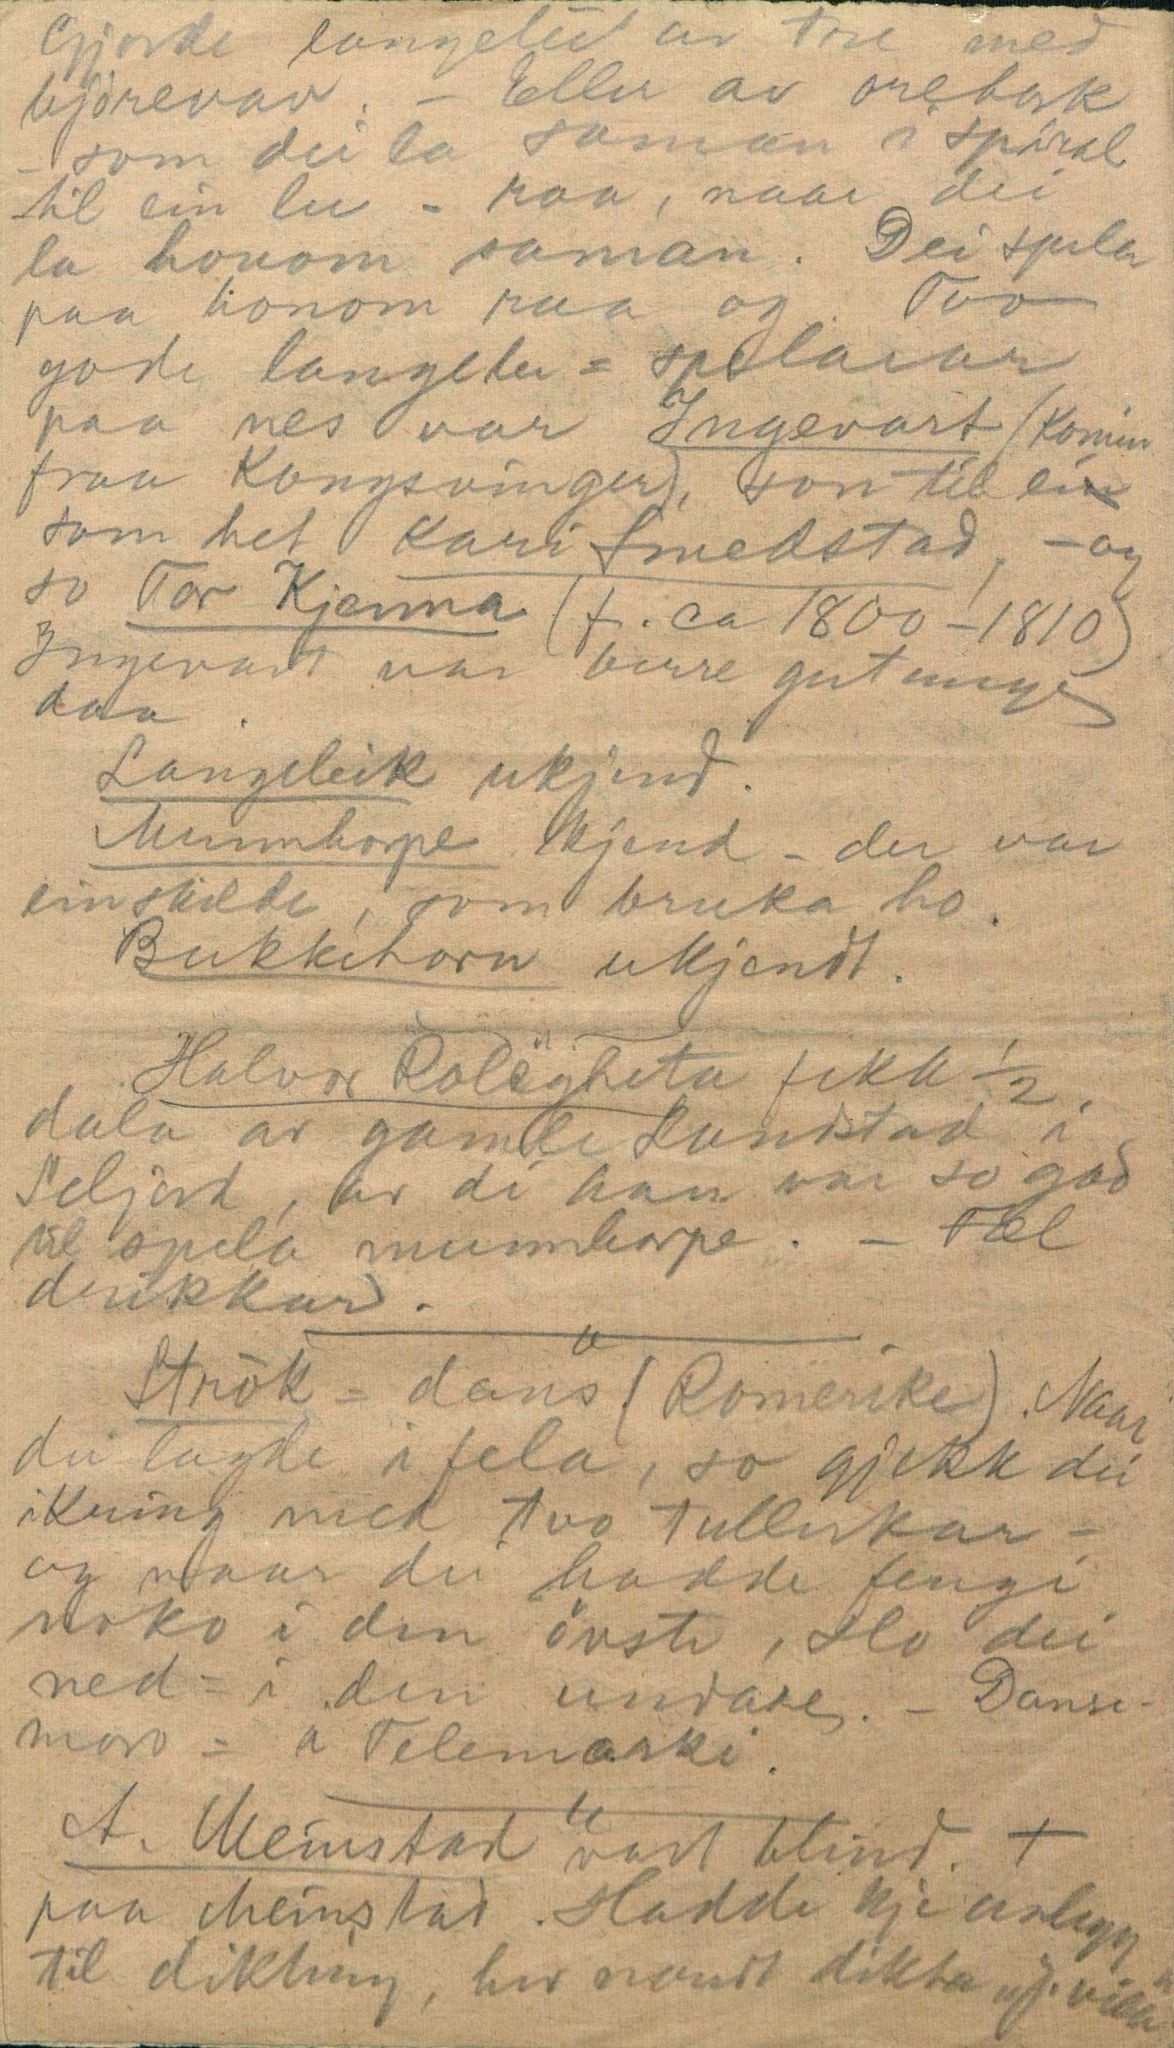 Gjorde langelur av tre med
bjørevav. - Eller av orebork
- som dei la saman i spiral
til ein lur - raa, naar dei
la honom saman. Dei spela
paa honom raa og. Tvo
gode langelur = spelarar
paa nes var Ingevart (komin
fraa Kongsvinger), son til ein
som het Kari Smedstad, - og
so Tor Kjerna (f. ca 1800 - 1810)
Ingevart var berre gutunge
daa.
Langeleik ukjend.
Munnhorpe kjend - der var
einskilde, som bruka ho.
Bukkehorn ukjendt.
Halvor Roligheta fekk 1/2
dala av gamle Rundstad i
Seljord, av di han var so god
til spela munnhorpe. -
drikkar.
Strök = dans (Romerike). Naar
dei lagde i fela, so gjekk dei
ikring med tvo tallerkar -
og naar dei hadde fengi
noko i den övste, slo dei
ned = i den undare. - Danse-
moro = i Telemarki.
A. Meinstad vart blind. +
paa Meinstad. Hadde kje anlegg
til dikting, her dikta